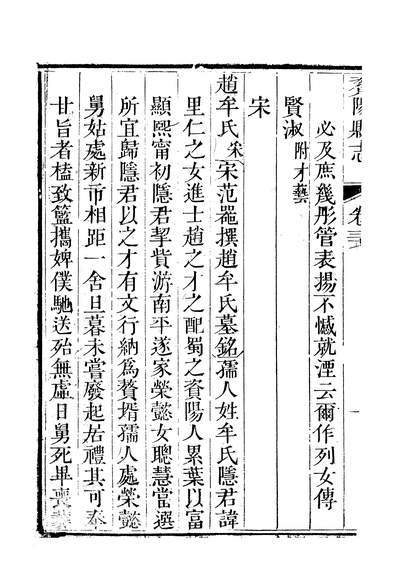 資陽縣志 卷 一
必及庶幾彤管表揚不憾就湮云爾作列女傳
賢淑 附才藝
宋
趙牟氏 宋 宋范撰趙牟氏墓銘孺人姓牟氏隱君諱
里仁之女進士趙之才之配蜀之資陽人累葉以富
顯熙甯初隱君挈貲游南平遂家榮懿女聰慧當選
所宜歸隱君以之才有文行納為贅壻孺人處榮懿
舅姑處新市相距一舍旦暮未嘗廢起居禮其可奉
甘旨者榼致籃攜婢僕馳送殆無虛日舅死畢喪